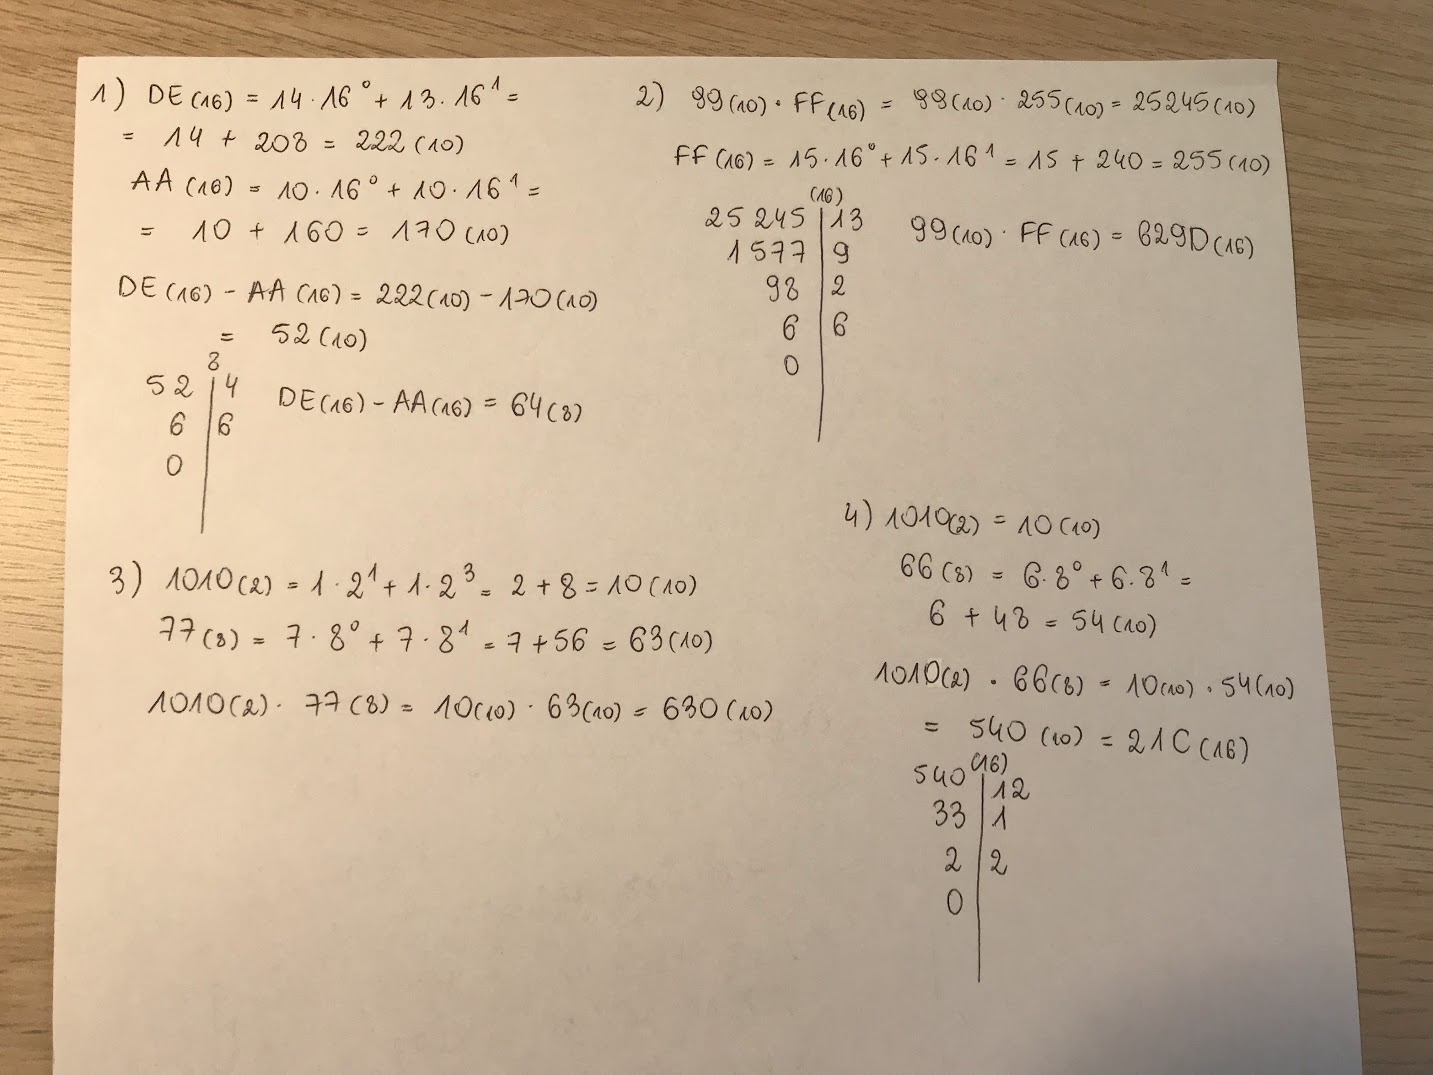 1) DE(16) = 14·16⁰ + 13·16¹ =
= 14 + 208 = 222(10)
AA(16) = 10·16⁰ + 10·16¹ =
= 10 + 160 = 170(10)
DE(16) - AA(16) = 222(10) - 170(10)
= 52(10)
8
52 | 4
6 | 6
0 |
DE(16) - AA(16) = 64(8)
2) 99(10) · FF(16) = 99(10) · 255(10) = 25245(10)
FF(16) = 15·16⁰ + 15·16¹ = 15 + 240 = 255(10)
(16)
25 245 | 13
1 577 | 9
98 | 2
6 | 6
0 |
99(10) · FF(16) = 629D(16)
3) 1010(2) = 1·2¹ + 1·2³ = 2 + 8 = 10(10)
77(8) = 7·8⁰ + 7·8¹ = 7 + 56 = 63(10)
1010(2) · 77(8) = 10(10) · 63(10) = 630(10)
4) 1010(2) = 10(10)
66(8) = 6·8⁰ + 6·8¹ =
6 + 48 = 54(10)
1010(2) · 66(8) = 10(10) · 54(10)
= 540(10) = 21C(16)
(16)
540 | 12
33 | 1
2 | 2
0 |